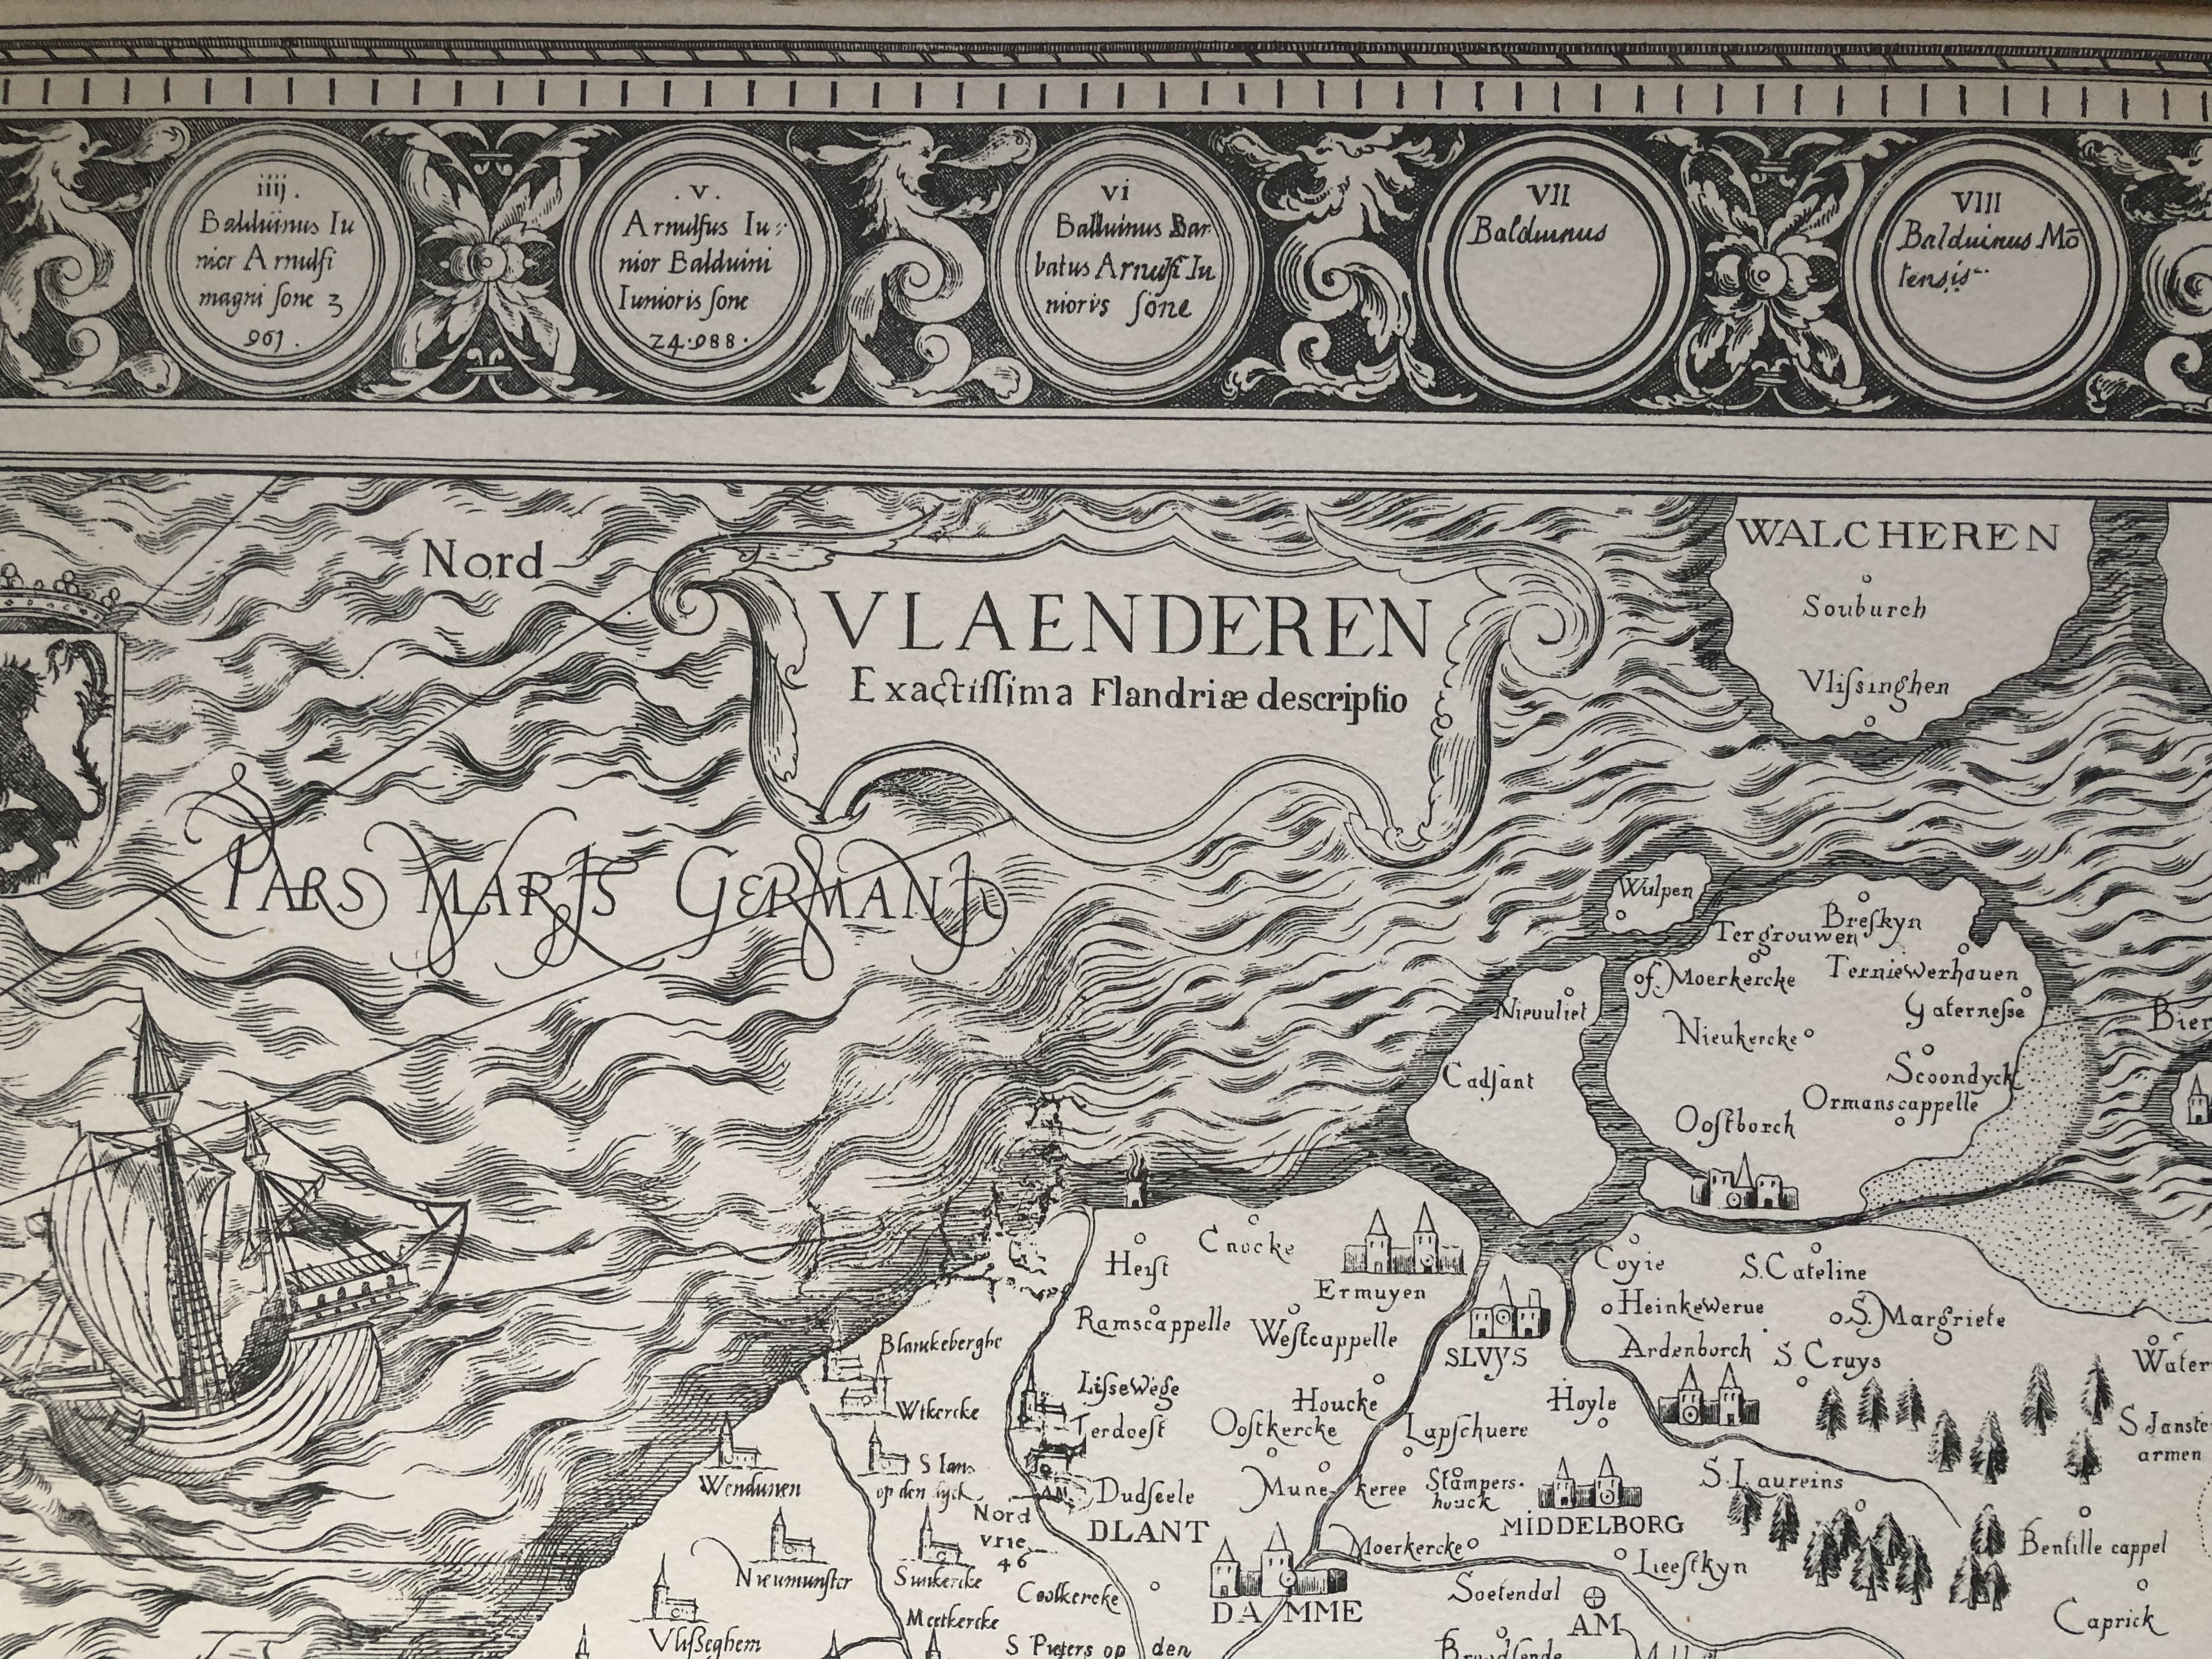 iiij.
Balduinus Iu
nior Arnulfi
magni sone 3
961.
.v.
Arnulfus Iu
nior Balduini
Iunioris sone
Z4.988.
vi
Balduinus Bar
batus Arnulfi Iu
nioris sone
VII
Balduinus
VIII
Balduinus Mō
tensis
Nord
VLAENDEREN
Exactissima Flandriæ descriptio
PARS MARIS GERMANI
WALCHEREN
Souburch
Vlissinghen
Wulpen
Breskyn
Tergrouwen
of. Moerkercke
Terniewerhauen
Gaternesse
Nieuuliet
Nieukercke
Bier
Cadsant
Scoondyck
Ormanscappelle
Oostborch
Cnocke
Heist
Ermuyen
Coyie
S. Cateline
Heinkewerue
S. Margriete
Ramscappelle
Westcappelle
SLVYS
Ardenborch
S. Cruys
Water
Blanckeberghe
Lissewege
Houcke
Hoyle
Wikercke
Terdoest
Oostkercke
Lapschuere
S Janste
armen
S Ians
op den dyck
Wendunen
Dudseele
Mune keree
Stampers-
houck
S. Laureins
Nord
vrie
46
DLANT
MIDDELBORG
Moerkercke
Bentille cappel
Nieumunster
Lieeskyn
Coolkercke
DAMME
Soetendal
AM
Caprick
Meetkercke
Vlisseghem
S Pieters op den